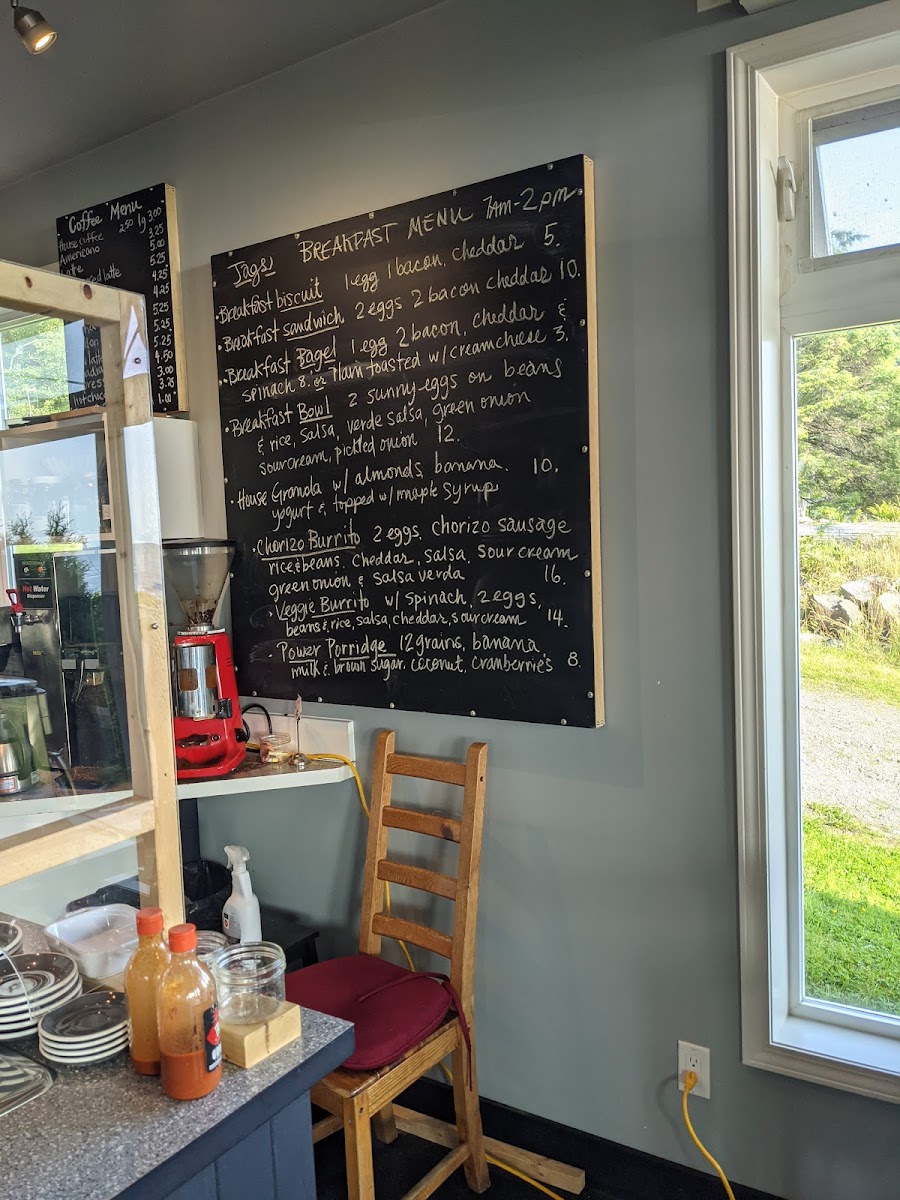 Coffee Menu
250 lg 3.00
House coffee 3.25
Americano 5.00
5.25
latte 4.25
4.25
5.25
5.25
5.25
4.50
3.00
3.25
hot choc 1.00
Jags BREAKFAST MENU 7AM-2pm
• Breakfast biscuit 1 egg 1 bacon, cheddar 5.
• Breakfast sandwich 2 eggs 2 bacon cheddar 10.
• Breakfast Bagel 1 egg 2 bacon, cheddar &
spinach 8. or Plain toasted w/ creamcheese 3.
• Breakfast Bowl 2 sunny eggs on beans
& rice, salsa, verde salsa, green onion
sourcream, pickled onion 12.
• House Granola w/ almonds, banana. 10.
yogurt & topped w/ maple syrup
• Chorizo Burrito 2 eggs, chorizo sausage
rice & beans, cheddar, salsa, sour cream
green onion & salsa verda 16.
• Veggie Burrito w/ spinach, 2 eggs,
beans & rice, salsa, cheddar, sour cream 14.
Power Porridge 12 grains, banana,
milk & brown sugar, coconut, cranberries 8.
Hot Water